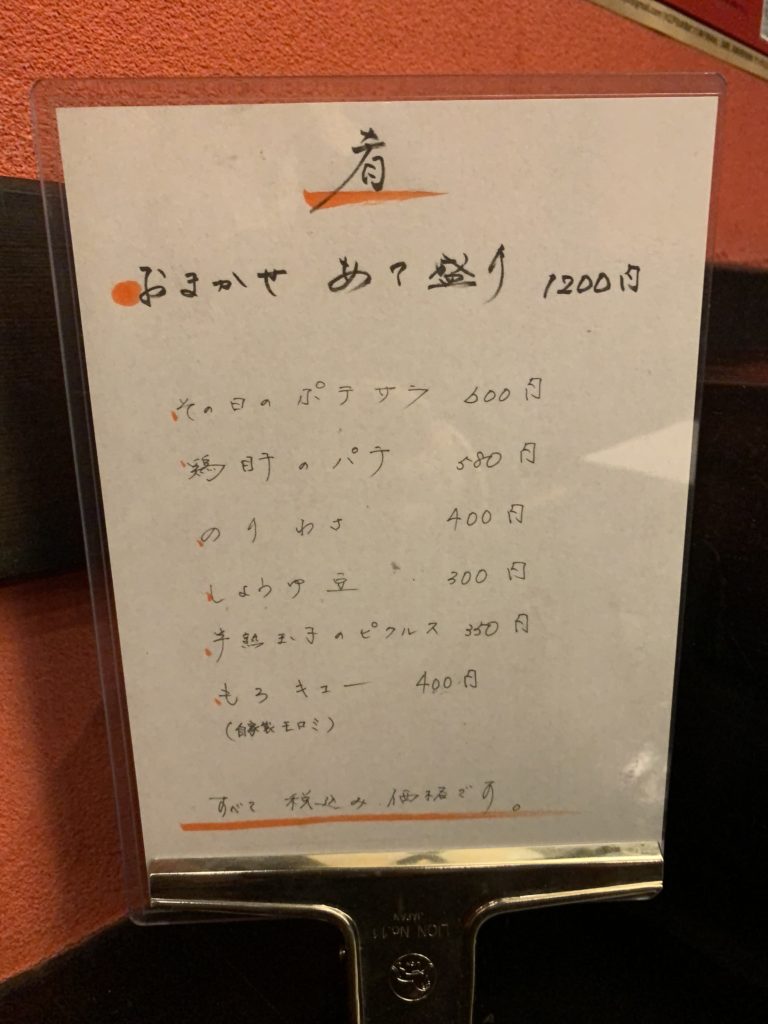 肴
おまかせ あて盛り 1200円
その日のポテサラ 600円
鶏肝のパテ 580円
のりわさ 400円
しょうゆ豆 300円
半熟玉子のピクルス 350円
もろキュー 400円
(自家製モロミ)
すべて 税込み 価格です。
LION No.11
JAPAN